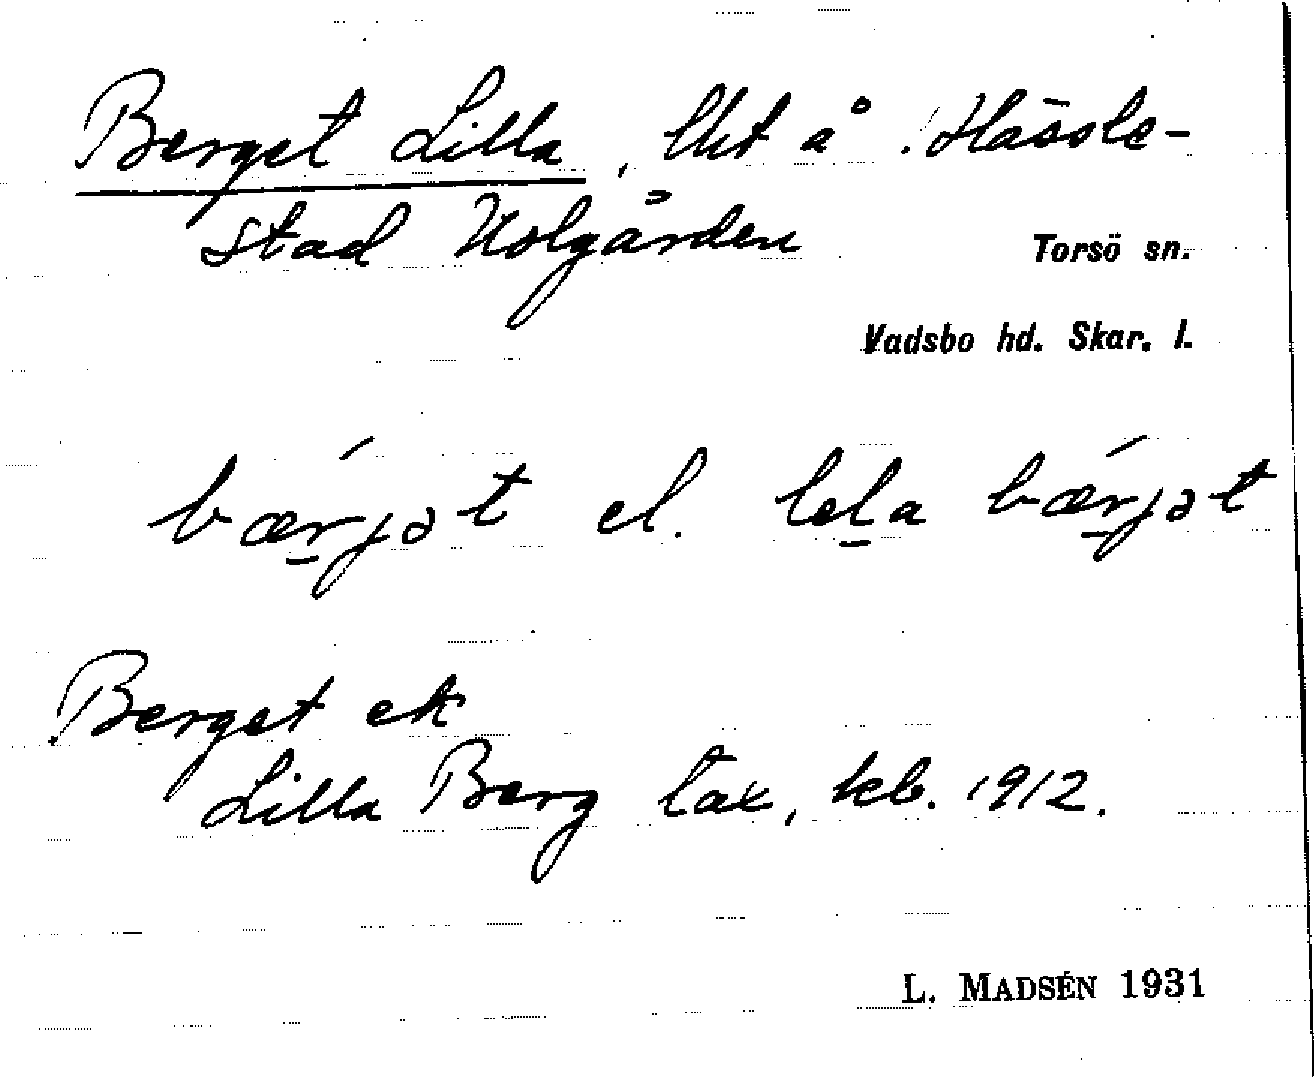 Berget Lilla, lht å Hassle-
stad Nolgården
Torsö sn.
Vadsbo hd. Skar. l.
bærjət el. lela bærjət
Berget ek
Lilla Berg tax, kb. 1912.
L. MADSÉN 1931